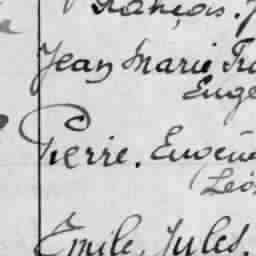 François.
Jean Marie
Euge
Pierre. Eugène
(Léo
Emile, Jules.